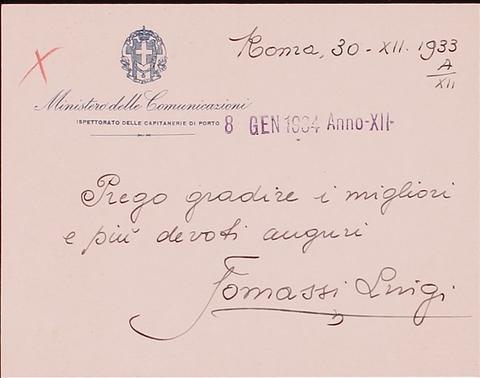 Roma, 30-XII. 1933
A
XII
Ministero delle Comunicazioni
ISPETTORATO DELLE CAPITANERIE DI PORTO
8 GEN 1934 Anno-XII-
Prego gradire i migliori
e più devoti auguri
Tomassi Luigi